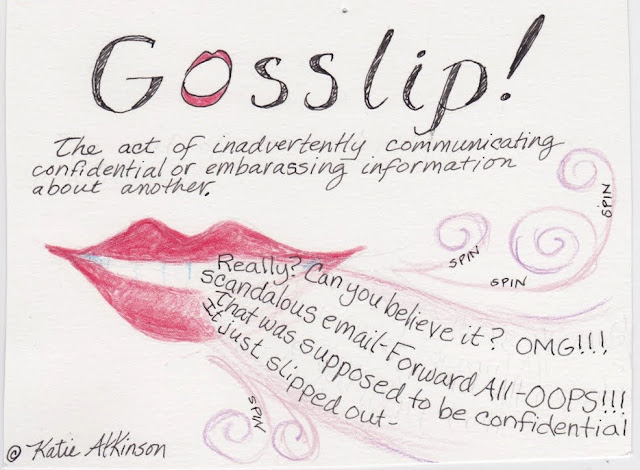 Gosslip!
The act of inadvertently communicating
confidential or embarassing information
about another.
SPIN
SPIN
SPIN
Really? Can you believe it? OMG!!!,
scandalous email-Forward All-OOPS!!!
That was supposed to be confidential
It just slipped out-
SPIN
@ Katie Atkinson